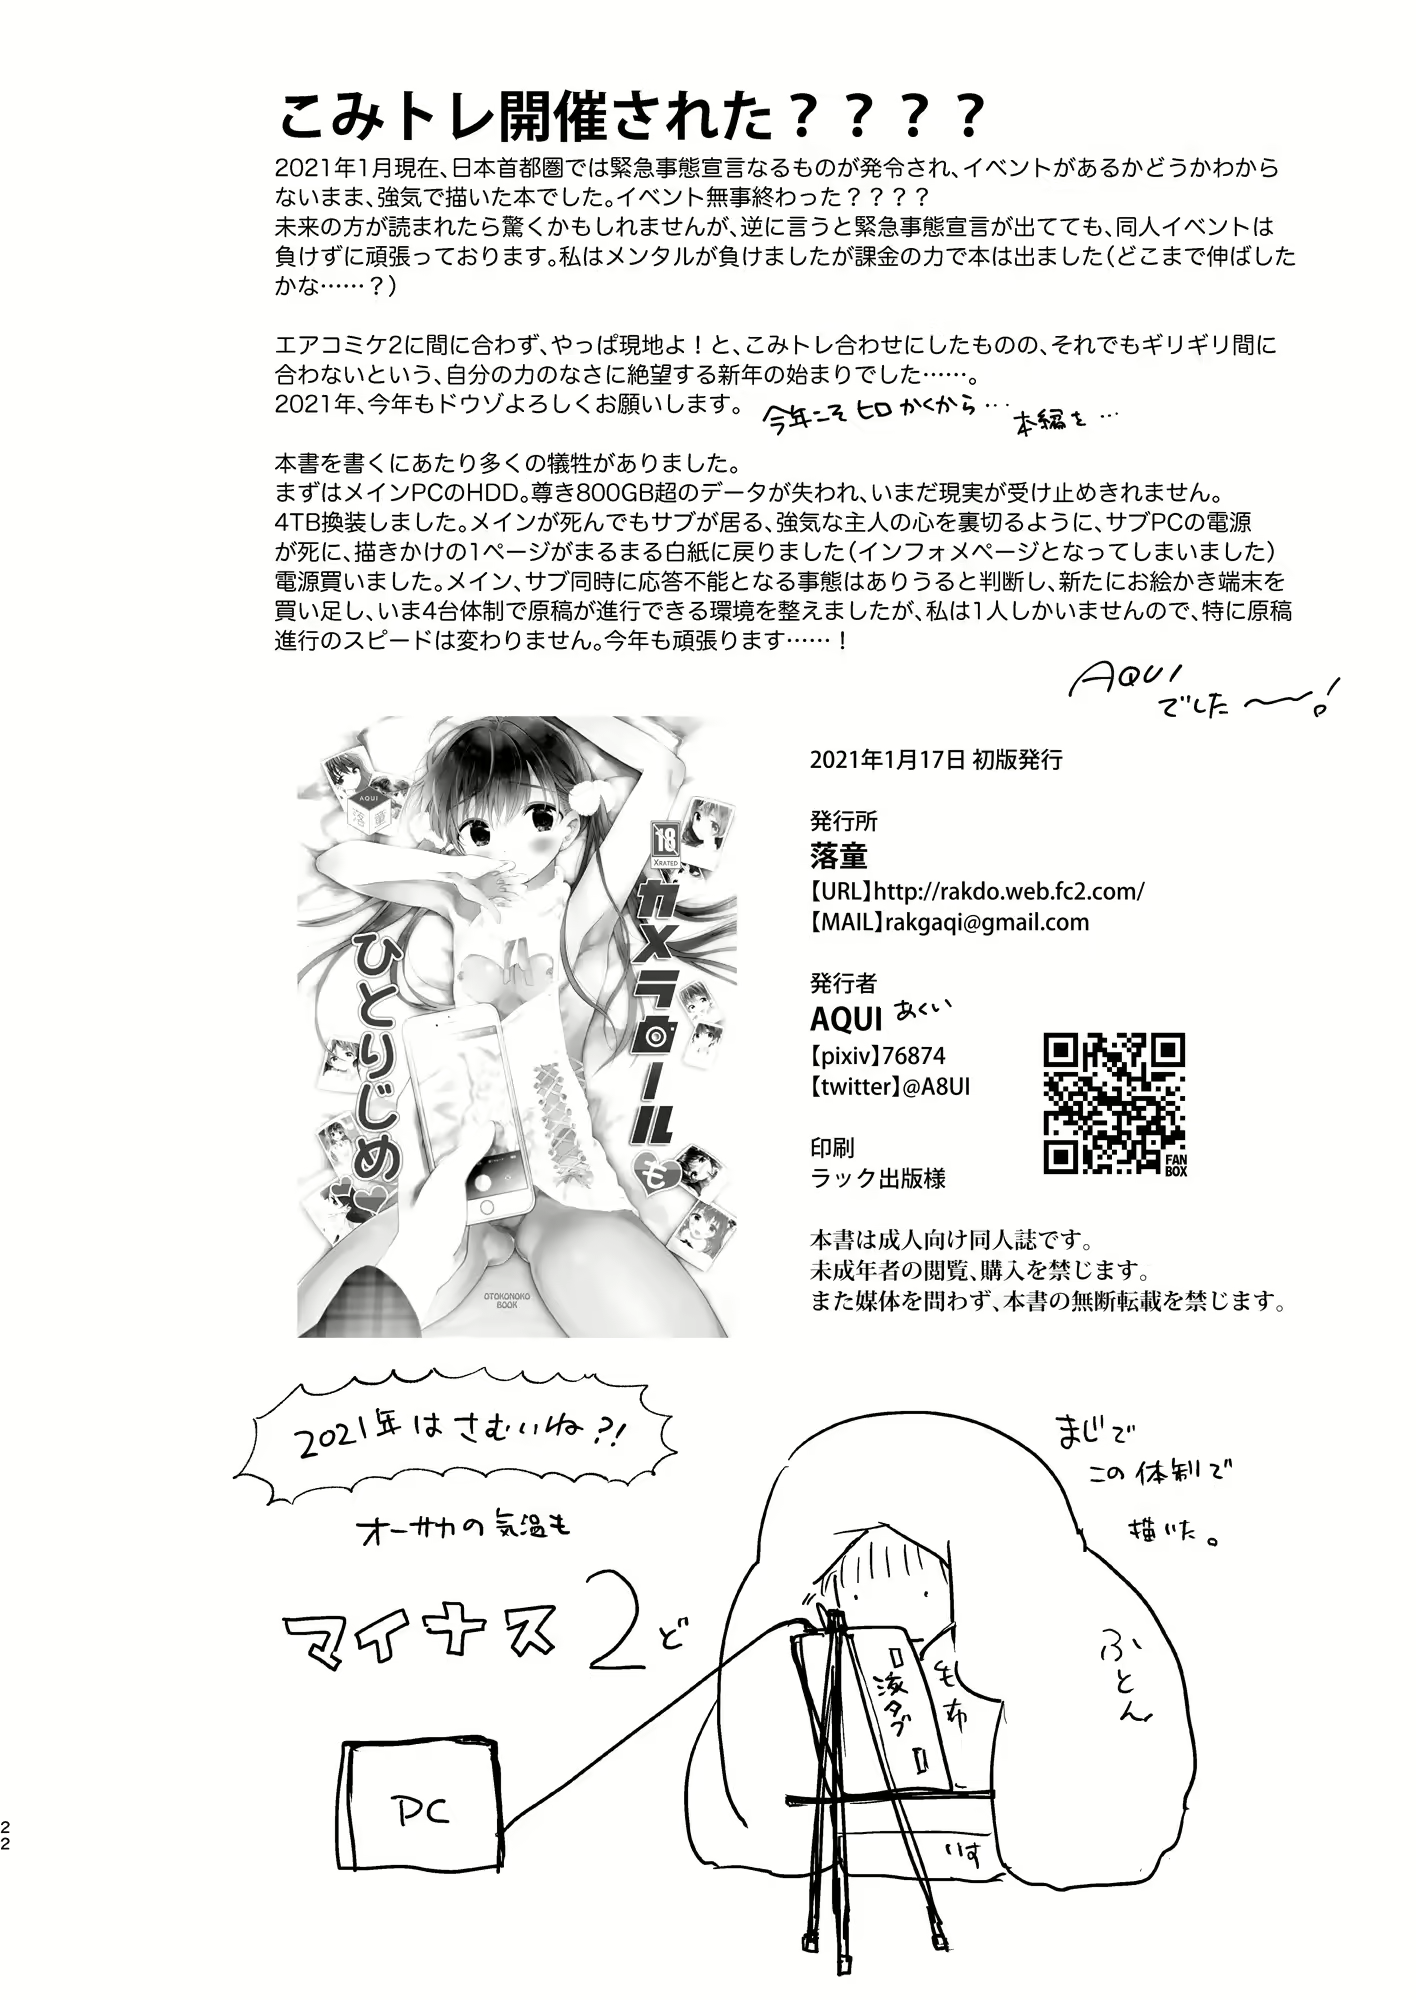 こみトレ開催された？？？？
2021年1月現在、日本首都圏では緊急事態宣言なるものが発令され、イベントがあるかどうかわから
ないまま、強気で描いた本でした。イベント無事終わった？？？？
未来の方が読まれたら驚くかもしれませんが、逆に言うと緊急事態宣言が出てても、同人イベントは
負けずに頑張っております。私はメンタルが負けましたが課金の力で本は出ました（どこまで伸ばした
かな……？）
エアコミケ2に間に合わず、やっぱ現地よ！と、こみトレ合わせにしたものの、それでもギリギリ間に
合わないという、自分の力のなさに絶望する新年の始まりでした……。
2021年、今年もドウゾよろしくお願いします。 今年こそヒロかくから… 本編を…
本書を書くにあたり多くの犠牲がありました。
まずはメインPCのHDD。尊き800GB超のデータが失われ、いまだ現実が受け止めきれません。
4TB換装しました。メインが死んでもサブが居る、強気な主人の心を裏切るように、サブPCの電源
が死に、描きかけの1ページがまるまる白紙に戻りました（インフォメページとなってしまいました）
電源買いました。メイン、サブ同時に応答不能となる事態はありうると判断し、新たにお絵かき端末を
買い足し、いま4台体制で原稿が進行できる環境を整えましたが、私は1人しかいませんので、特に原稿
進行のスピードは変わりません。今年も頑張ります……！
AQUI
でした〜！
AQUI
落童
18
XRATED
カメラロール
も
ひとりじめ
OTOKONOKO
BOOK
2021年1月17日 初版発行
発行所
落童
【URL】http://rakdo.web.fc2.com/
【MAIL】rakgaqi@gmail.com
発行者
AQUI あくい
【pixiv】76874
【twitter】@A8UI
FAN
BOX
印刷
ラック出版様
本書は成人向け同人誌です。
未成年者の閲覧、購入を禁じます。
また媒体を問わず、本書の無断転載を禁じます。
2021年はさむいね?!
オーサカの気温も
マイナス2ど
まじで
この体制で
描いた。
ふとん
毛布
液タブ
いす
PC
22